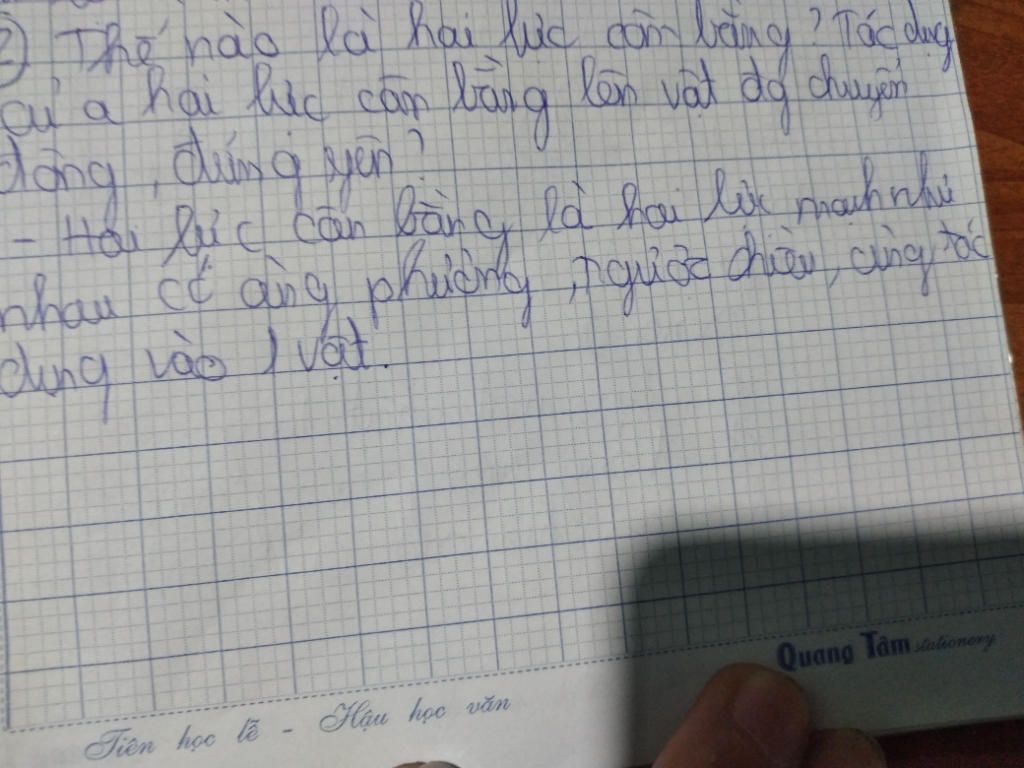 2) Thế nào là hai lực cân bằng? Tác dụng
củ a hai lực cân bằng lên vật đg chuyển
động, đứng yên?
- Hai lực cân bằng là hai lực mạnh như
nhau có cùng phương, ngược chiều, cùng tác
dụng vào 1 vật.
Quang Tâm stationery
Tiên học lễ - Hậu học văn